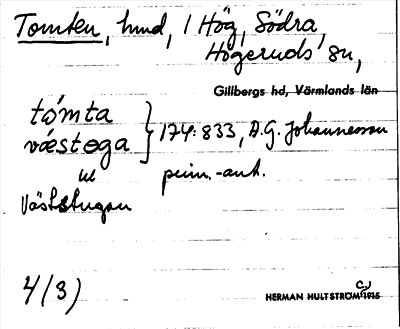 Tomten, hmd, / Hög, Södra,
Högeruds sn,
Gillbergs hd, Värmlands län
tómta
væstoga } 174:833, A.G. Johannesson
prim.-ant.
Väststugan
4/(3)
HERMAN HULTSTRÖM 1915